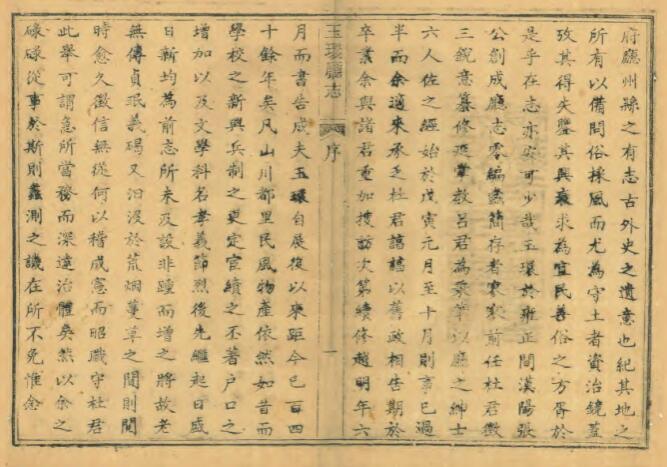 府廳州縣之有志古外史之遺意也紀其地之
所有以備問俗採風而尤為守土者資治鏡蓋
攷其得失鑒其興衰求為宜民善俗之方胥於
是乎在志亦安可少哉玉環於雍正間漢陽張
公創成廳志零編蠹簡存者寥寥前任杜君徵
三銳意纂修延掌教呂君為秉筆以廳之紳士
六人佐之經始於戊寅元月至十月則事已過
半而余適來承乏杜君諄諄以舊政相告期於
卒業余與諸君重加搜訪次第續修越明年六
玉環廳志
序
一
月而書告成夫玉環自展復以來距今已百四
十餘年矣凡山川都里民風物產依然如昔而
學校之新興兵制之更定官績之丕著戶口之
增加以及文學科名孝義節烈後先繼起日盛
日新均為前志所未及設非踵而增之將故老
無傳貞珉義碣又汨沒於荒烟蔓草之間則閱
時愈久徵信無從何以稽成憲而昭職守杜君
此舉可謂急所當務而深達治體矣然以余之
碌碌從事於斯則蠡測之譏在所不免惟念